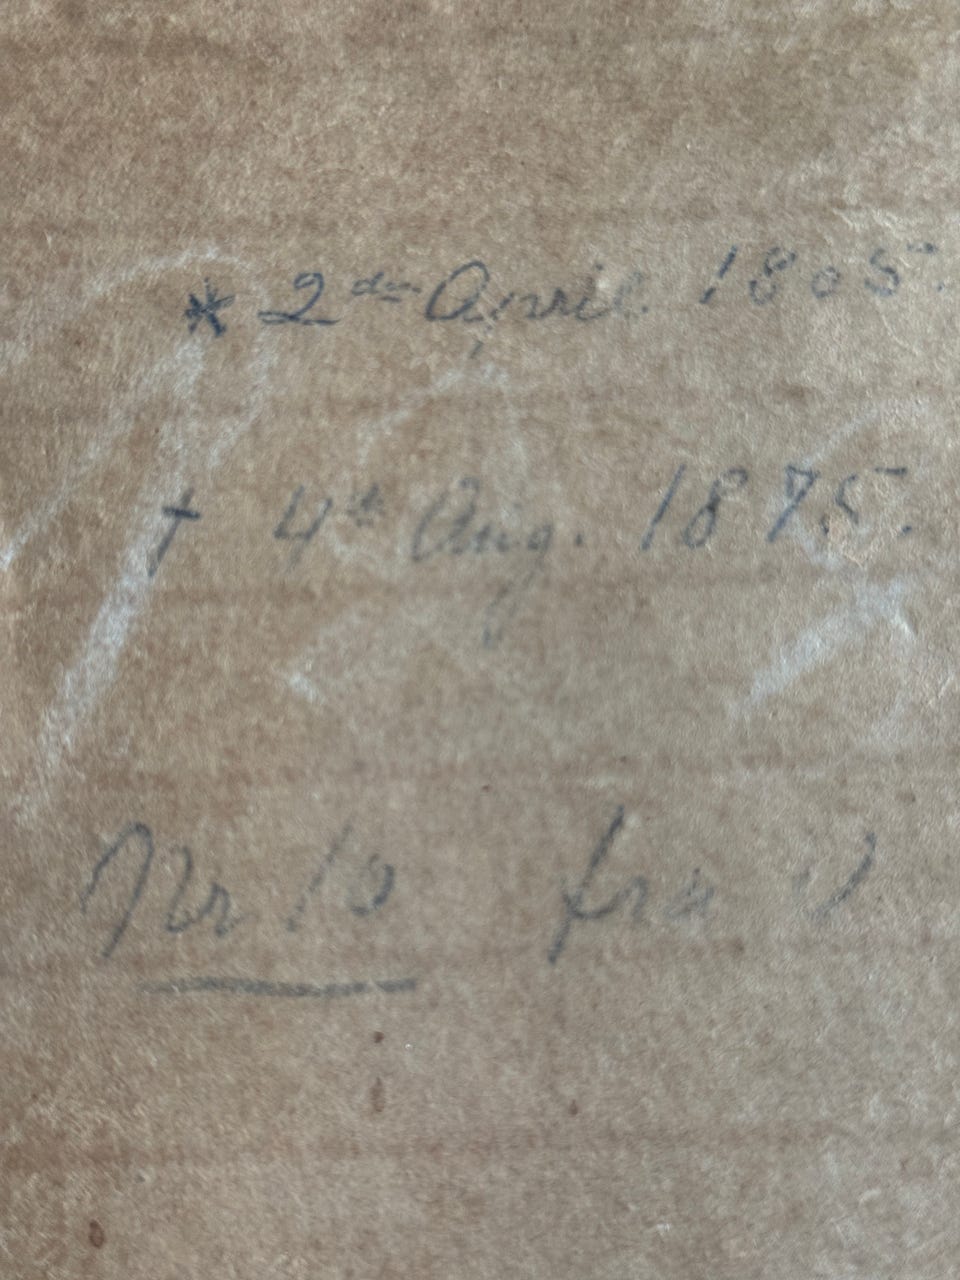 * 2den April 1805.
† 4de Aug. 1875.
Nr 10 fra